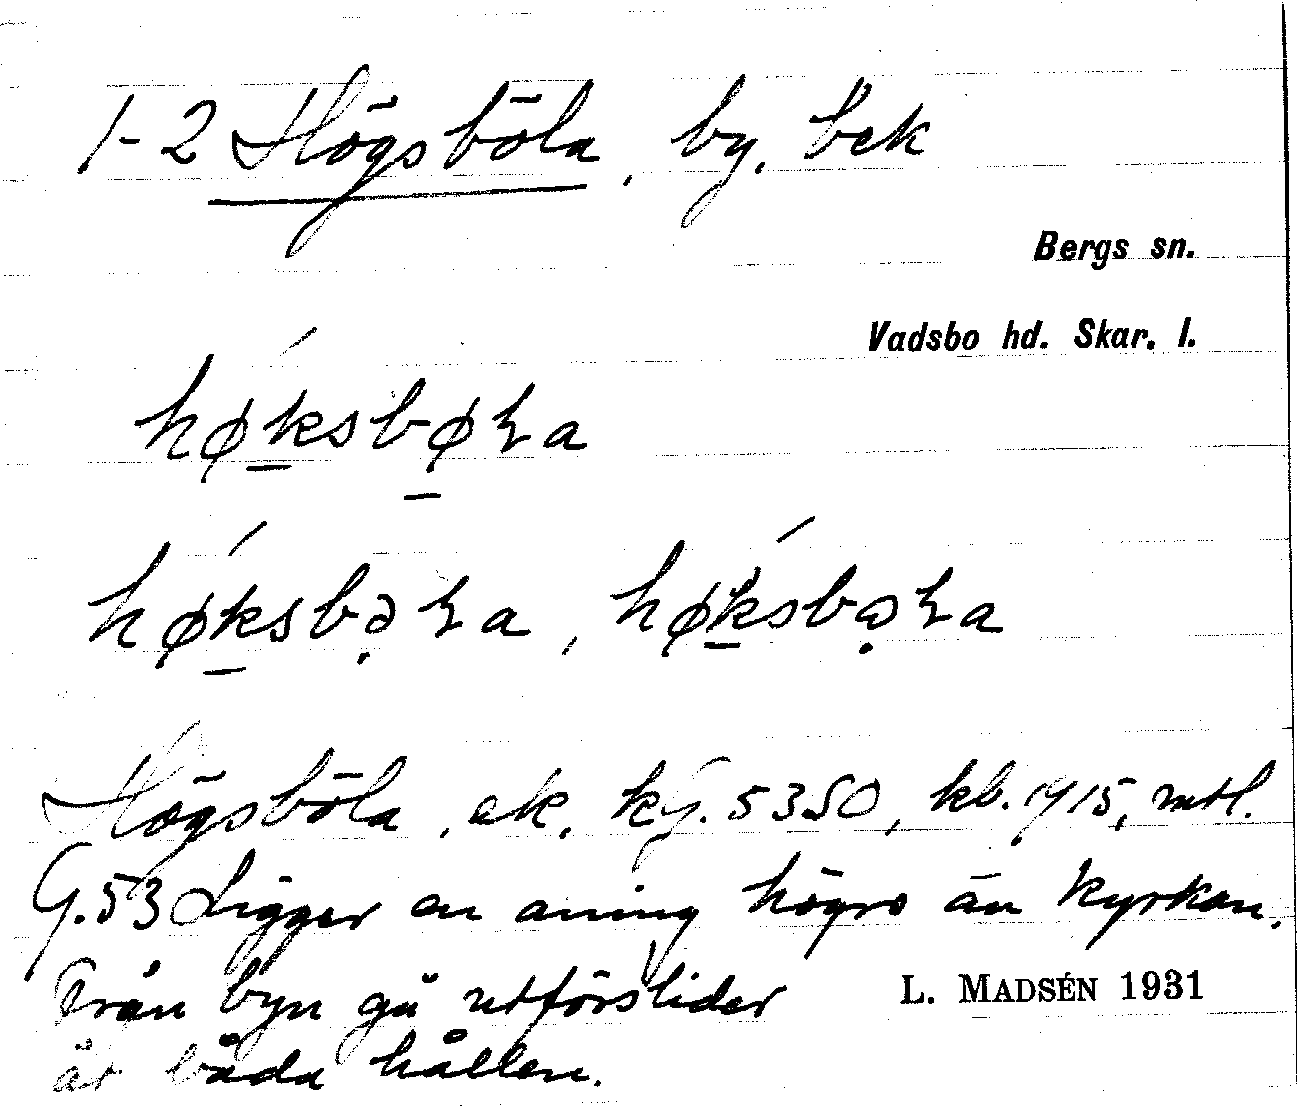 1-2 Högsböla, by. bek
Bergs sn.
Vadsbo hd. Skar. l.
høksbøɽa
høksbəɽa, høksbɷɽa
Högsböla, ek. kf. 5350, kb. 1715, mtl.
G.53 Ligger en aning högre än kyrkan.
Från byn gå utförslider
åt båda hållen.
L. MADSÉN 1931